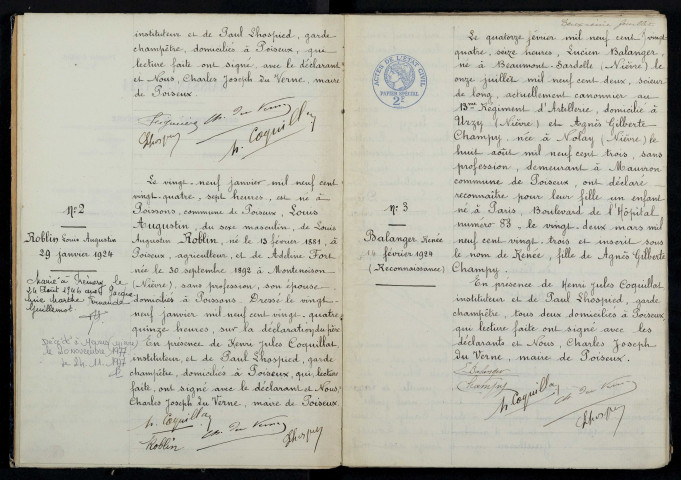 instituteur et de Paul Lhospied, garde
champêtre, domiciliés à Poiseux, qui
lecture faite ont signé avec le déclarant
et Nous, Charles Joseph du Verne, maire
de Poiseux.
Ch. du Verne
Lhospied
h. Coquillat
No 2
Roblin Louis Augustin
29 janvier 1924
Marié à
24 Août 1946 avec
Marthe
Guillemot
Le vingt-neuf janvier mil neuf cent
vingt-quatre, sept heures, est né à
Poissons, commune de Poiseux, Louis
Augustin, du sexe masculin, de Louis
Augustin Roblin, né le 13 février 1881, à
Poiseux, agriculteur, et de Adeline Fort
née le 30 septembre 1892 à Montenoison
(Nièvre), sans profession, son épouse
domiciliés à Poissons. Dressé le vingt
neuf janvier mil neuf cent vingt-quatre
quinze heures, sur la déclaration du père
En présence de Henri Jules Coquillat,
instituteur, et de Paul Lhospied, garde
champêtre, domiciliés à Poiseux, qui, lecture
faite, ont signé avec le déclarant et Nous
Charles Joseph du Verne, maire de Poiseux
h. Coquillat
Roblin
Ch. du Verne
Lhospied
ACTES DE L'ETAT CIVIL
PAPIER SPECIAL
2F
No 3
Balanger Renée
14 février 1924
(Reconnaissance)
Le quatorze février mil neuf cent vingt
quatre, seize heures, Lucien Balanger,
né à Beaumont-Sardolle (Nièvre) le
onze juillet mil neuf cent deux, scieur
de long, actuellement canonnier au
13me Régiment d'Artillerie, domicilié à
Urzy (Nièvre) et Agnès Gilberte
Champy née à Nolay (Nièvre) le
huit août mil neuf cent trois, sans
profession, demeurant à Mauvron
commune de Poiseux, ont déclaré
reconnaître pour leur fille un enfant
né à Paris, Boulevard de l'Hôpital
numéro 83, le vingt-deux mars mil
neuf cent vingt trois et inscrit sous
le nom de Renée, fille de Agnès Gilberte
Champy.
En présence de Henri Jules Coquillat
instituteur et de Paul Lhospied, garde
champêtre, tous deux domiciliés à Poiseux
qui lecture faite ont signé avec les
déclarants et Nous, Charles Joseph
du Verne, maire de Poiseux.
Balanger
Champy
h. Coquillat
Ch. du Verne
Lhospied